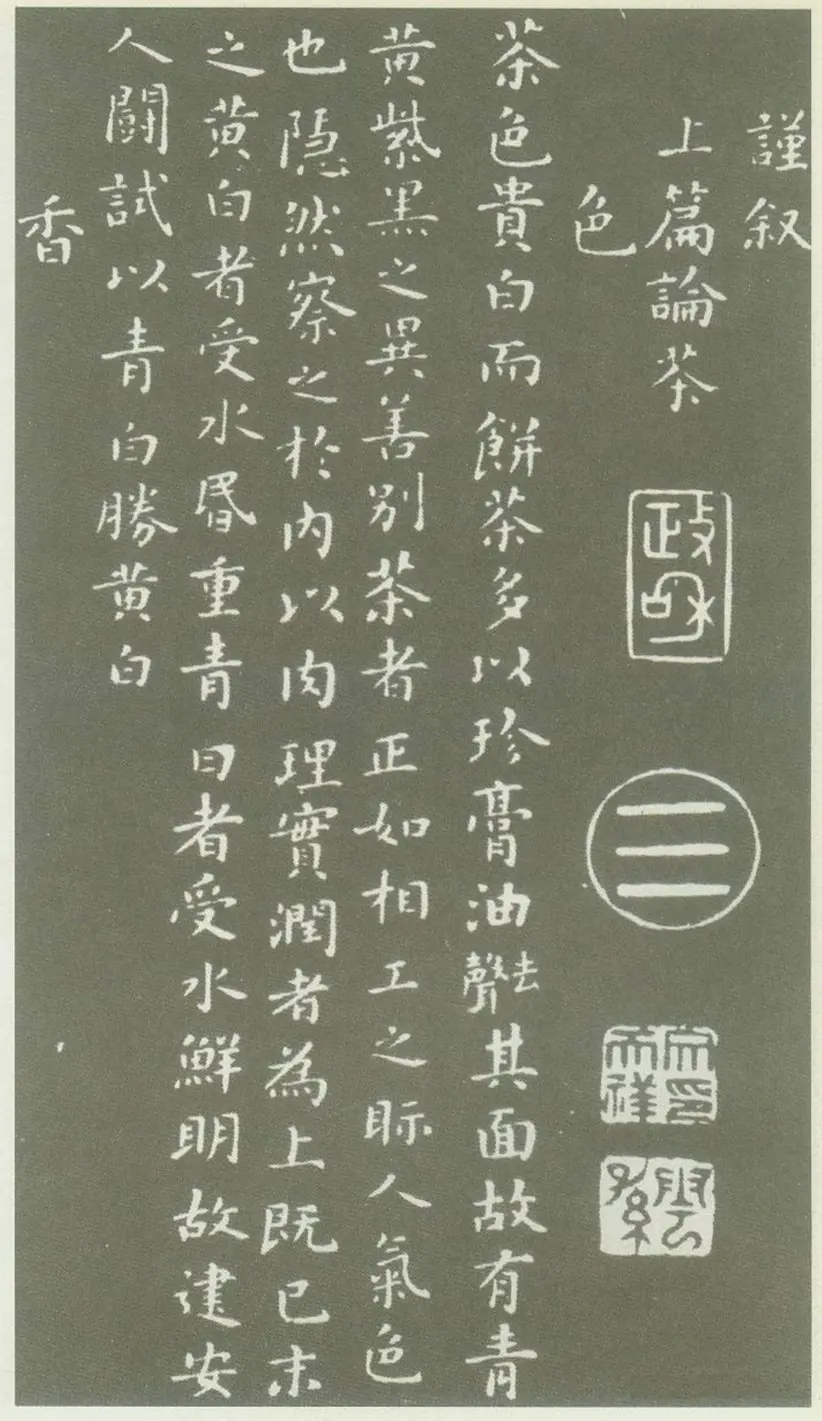 謹叙
上篇論茶
政和
色
茶色貴白而餅茶多以珍膏油去聲其面故有青
黄紫黑之異善别茶者正如相工之眎人氣色
也隠然察之於内以肉理實潤者為上既已末
之黄白者受水昬重青白者受水鮮明故建安
人鬪試以青白勝黄白
香